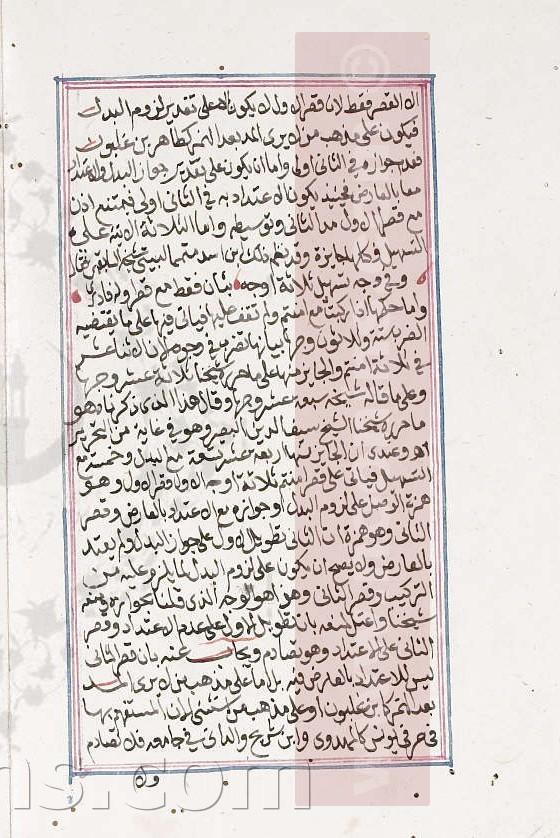 الا القصر فقط لان قصر الاول لا يكون الا على تقدير لزوم البدل
فيكون على مذهب من لا يرى المد بعد الهمز كطاهر بن غلبون
فعدم جوازه في الثاني اولى واما ان يكون على تقدير جواز البدل والاعتداد
معه بالعارض فحينئذ يكون الاعتداد به في الثاني اولى فيمتنع اذن
مع قصر الاول مد الثاني وتوسيطه واما الثلاثة الاتية على
التسهيل فكلها جايزة وقد نظم ذلك بن اسد متمما لبيتي شيخه السابقين فقال
وفي وجه تسهيل ثلاثة اوجه بثان فقط مع قصر اول
واما حكمها اذا ركبت مع امنتم ولم تقف عليها فياتي فيها على ما تقتضيه
الضرب ستة وثلاثون وجها بيانها تضرب في وجوه الان الاثنا عشر
في ثلاثة امنتم والجايز منها على ما حرره شيخنا ثلاثة عشر وجها
وعلى ما قاله شيخه سبعة عشر وجها وقال هذا الذي ذكرناه هو
ما حرره شيخنا الشيخ سيف الدين البصير وهو في غاية من التحرير
اه وعندي ان الجايز منها اربعة عشر تسعة مع البدل وخمسة مع
التسهيل فياتي على قصر امنتم ثلاثة اوجه الاول قصر الاول وهو
همزة الوصل على لزوم البدل او جوازه مع الاعتداد بالعارض وقصر
الثاني وهو همزة ان الثاني تطويل الاول على جواز البدل ولم يعتد
بالعارض ولا يصح ان يكون على لزوم البدل لما يلزم عليه من
التركيب وقصر الثاني وهذا هو الوجه الذي قلنا بجوازه ومنعه
شيخنا واعتل لمنعه بان تطويل الاول على عدم الاعتداد وقصر
الثاني على الاعتداد وهو تصادم ويجاب عنه بان قصر الثاني
ليس للاعتداد بالعارض فيه بل اما على مذهب من لا يرى المد
بعد الهمز كابن غلبون او على مذهب من استثنى الان المستفهم بها
في حرفي يونس كالمهدوي وابن شريح والداني في جامعه فلا تصادم
ولا